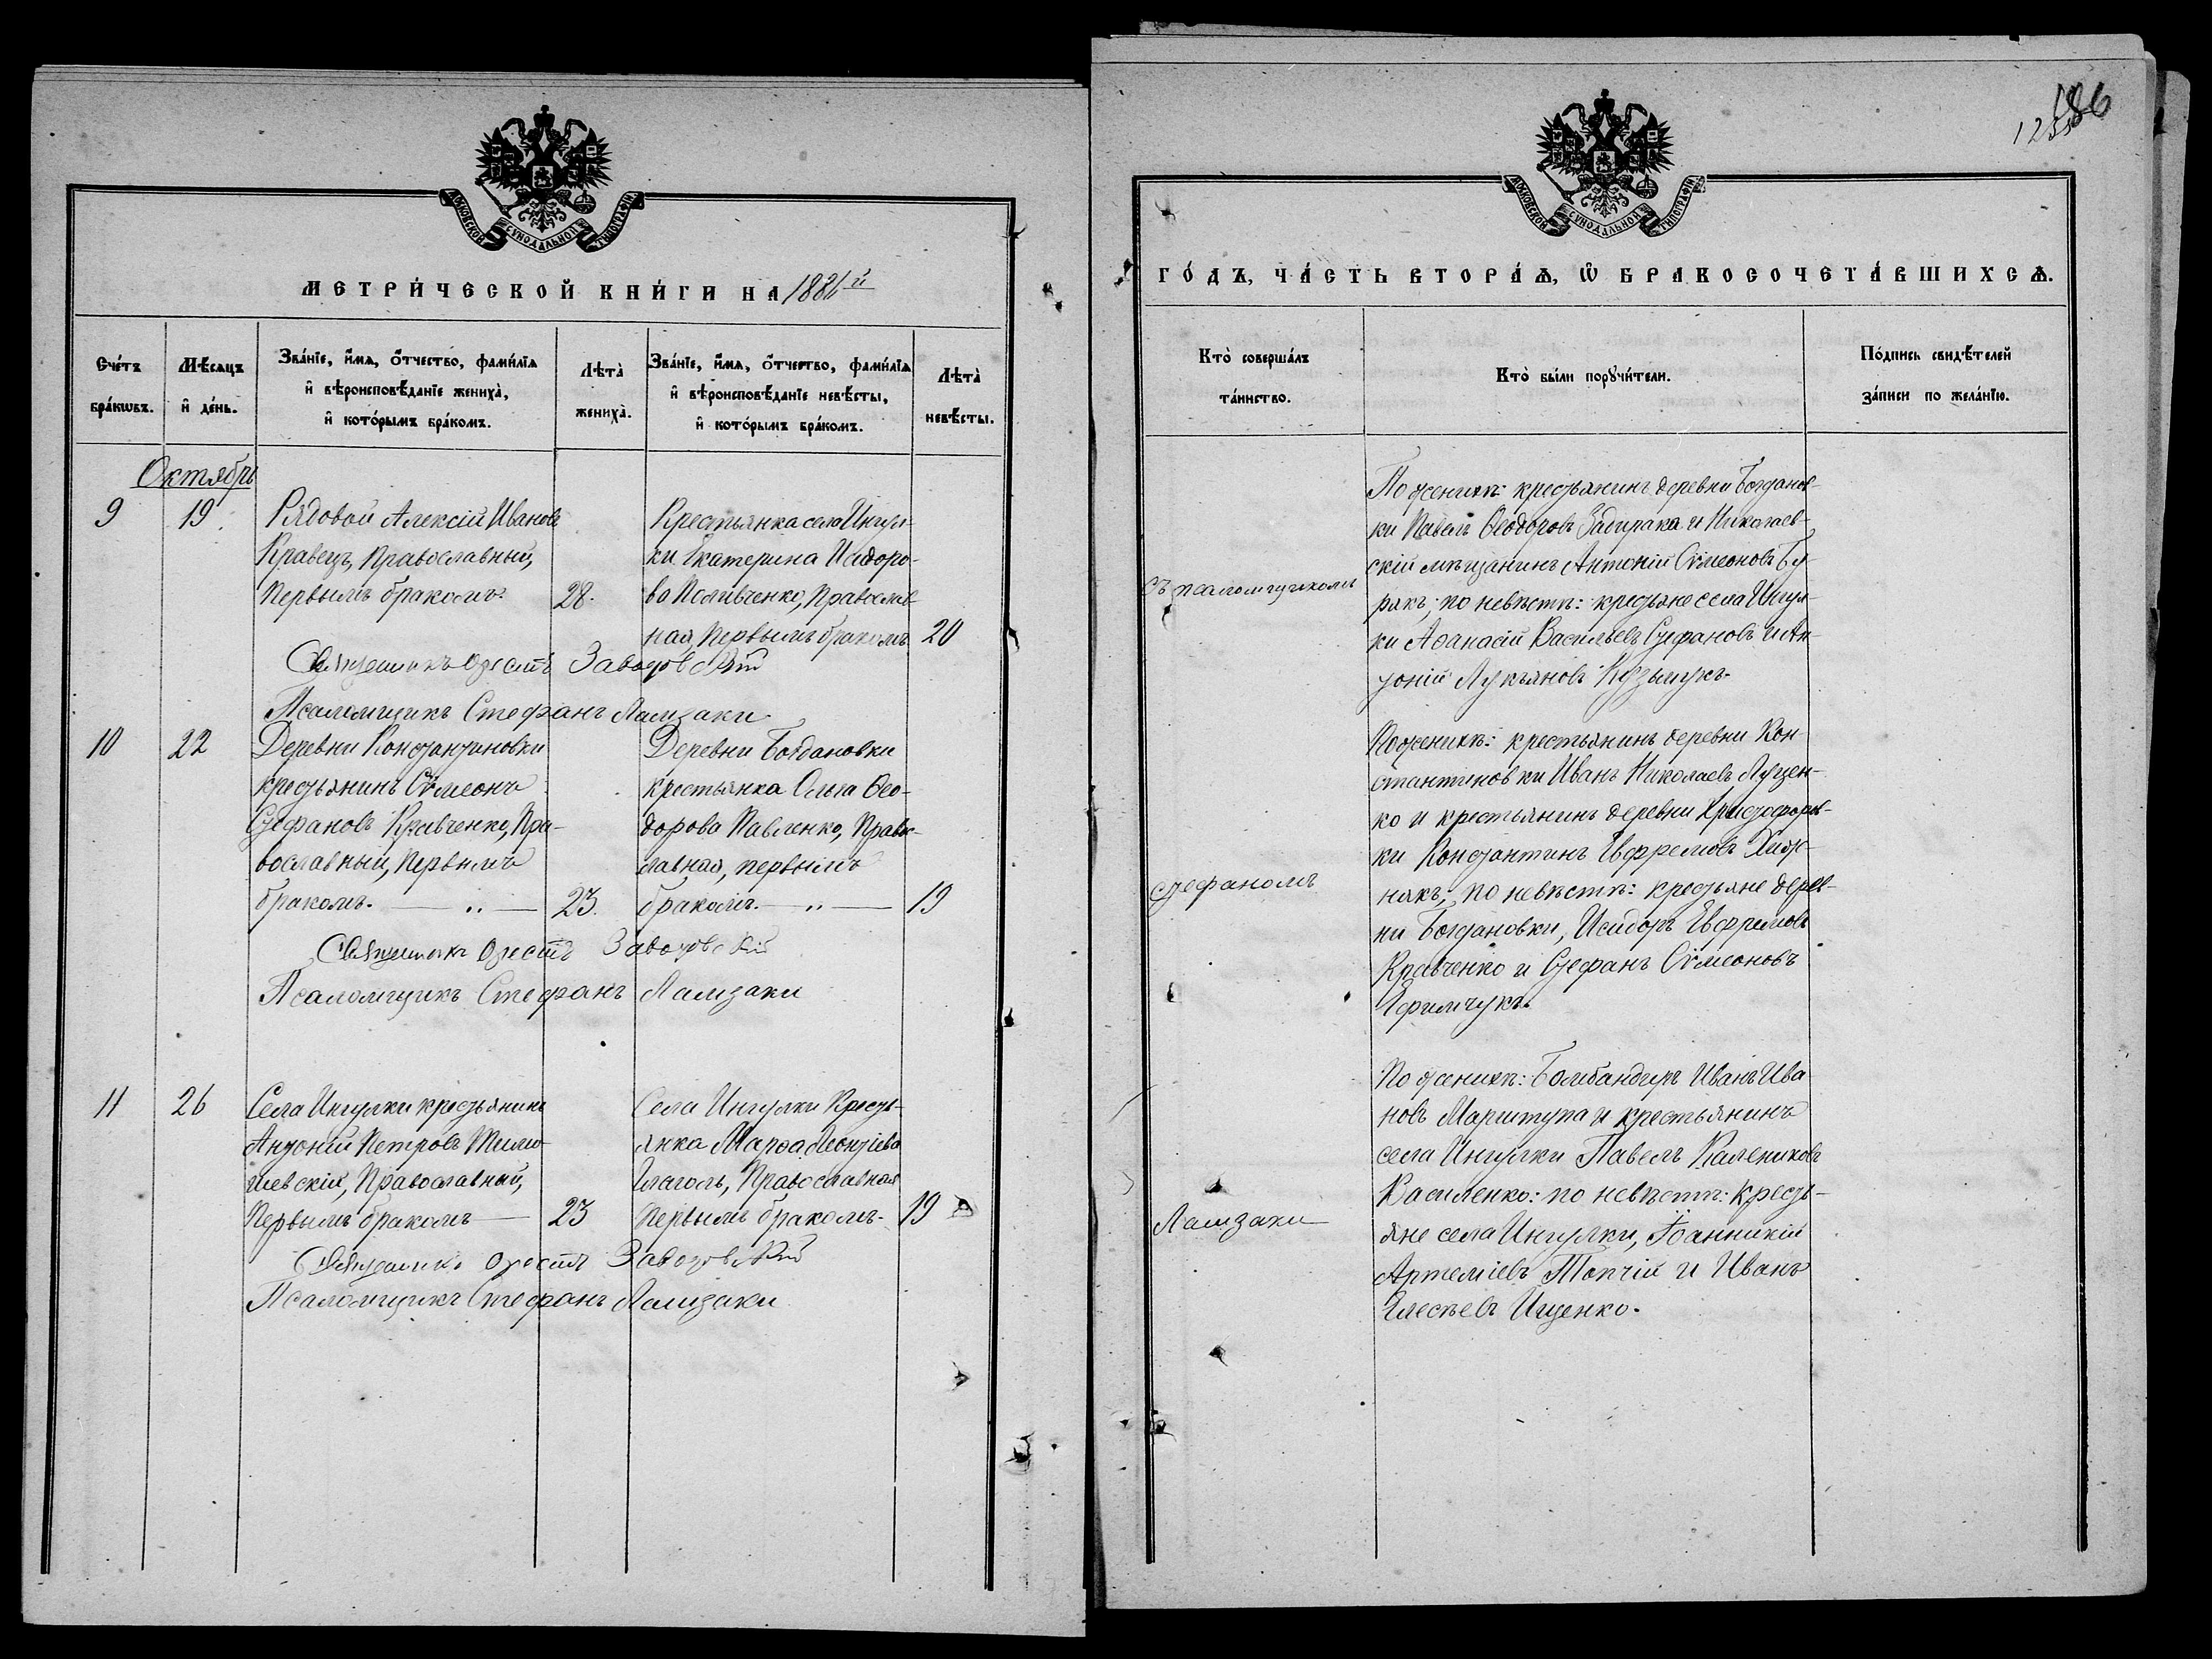 МОСКОВСКОЙ СѴНОДАЛЬНОЙ ТИПОГРАФІИ
МЕТРИ́ЧЕСКОЙ КНИ́ГИ НА 1886й
Сче́тъ
бра́кѡвъ.
Мѣ́сяцъ
и҆ де́нь.
Зва́нїе, и҆́мѧ, ѻ҆́тчество, фами́лїѧ
и҆ вѣ́роисповѣ́данїе женихà,
и҆ кото́рымъ бра́комъ.
Лѣ́тà
женихà.
Зва́нїе, и҆́мѧ, ѻ҆́тчество, фами́лїѧ
и҆ вѣ́роисповѣ́данїе невѣ́сты,
и҆ кото́рымъ бра́комъ.
Лѣ́тà
невѣ́сты.
Октябрь
9
19
Рядовой Алексій Ивановъ
Кравецъ, Православный,
Первымъ бракомъ.
28.
Крестьянка села Ингул-
ки Екатерина Исидоро-
ва Поливченко, Православ-
ная, Первымъ бракомъ
20
Священникъ Орестъ Заводовскій
Псаломщикъ Стефанъ Ламзаки
10
22
Деревни Константиновки
крестьянинъ Сѵмеонъ
Стефановъ Кравченко, Пра-
вославный, Первымъ
бракомъ. — „ —
23.
Деревни Богдановки
крестьянка Ольга Ѳео-
дорова Павленко, Право-
славная, первымъ
бракомъ. — „ —
19
Священникъ Орестъ Заводовскій
Псаломщикъ Стефанъ Ламзаки
11
26
Села Ингулки крестьянинъ
Антоній Петровъ
Православный,
Первымъ бракомъ —
23
Села Ингулки Кресть-
янка Марѳа Леонтіева
Глаголь, Православная
Первымъ бракомъ.
19
Священникъ Орестъ Заводовскій
Псаломщикъ Стефанъ Ламзаки
186
МОСКОВСКОЙ СѴНОДАЛЬНОЙ ТИПОГРАФІИ
ГО́ДЪ, ЧА́СТЬ ВТОРА́Ѧ, Ѽ БРАКОСОЧЕТА́ВШИХСѦ.
Кто̀ соверша́лъ
та́инство.
Кто̀ бы́ли порꙋчи́тели.
По́дпись свидѣ́телей
за́писи по жела́нїю.
съ псаломщикомъ
Стефаномъ
Ламзаки
По женихѣ: крестьянинъ деревни Богданов-
ки Павелъ Ѳеодоровъ Задирака и Николаев-
скій мѣщанинъ Антоній Сѵмеоновъ Бу-
ракъ; по невѣстѣ: крестьяне села Ингул-
ки Аѳанасій Васильевъ Стефановъ и Ан-
тоній Лукьяновъ Кузьмукъ.
По женихѣ: крестьянинъ деревни Кон-
стантиновки Иванъ Николаевъ Луцен-
ко и крестьянинъ деревни Христофоров-
ки Константинъ Евфремовъ Хиж-
някъ; по невѣстѣ: крестьяне дерев-
ни Богдановки, Исидоръ Евфимовъ
Кравченко и Стефанъ Сѵмеоновъ
Ефимчукъ.
По женихѣ: Бомбандиръ Иванъ Ива
новъ Марштупа и крестьянинъ
села Ингулки Павелъ Калениковъ
Василенко: по невѣстѣ: кресть-
яне села Ингулки, Іоанникій
Артеміевъ Топчій и Иванъ
Ищенко.